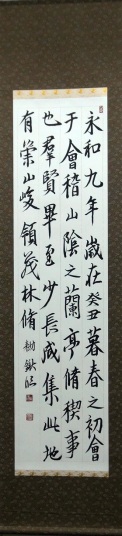 永和九年歲在癸丑暮春之初會
于會稽山陰之蘭亭脩禊事
也羣賢畢至少長咸集此地
有崇山峻領茂林脩